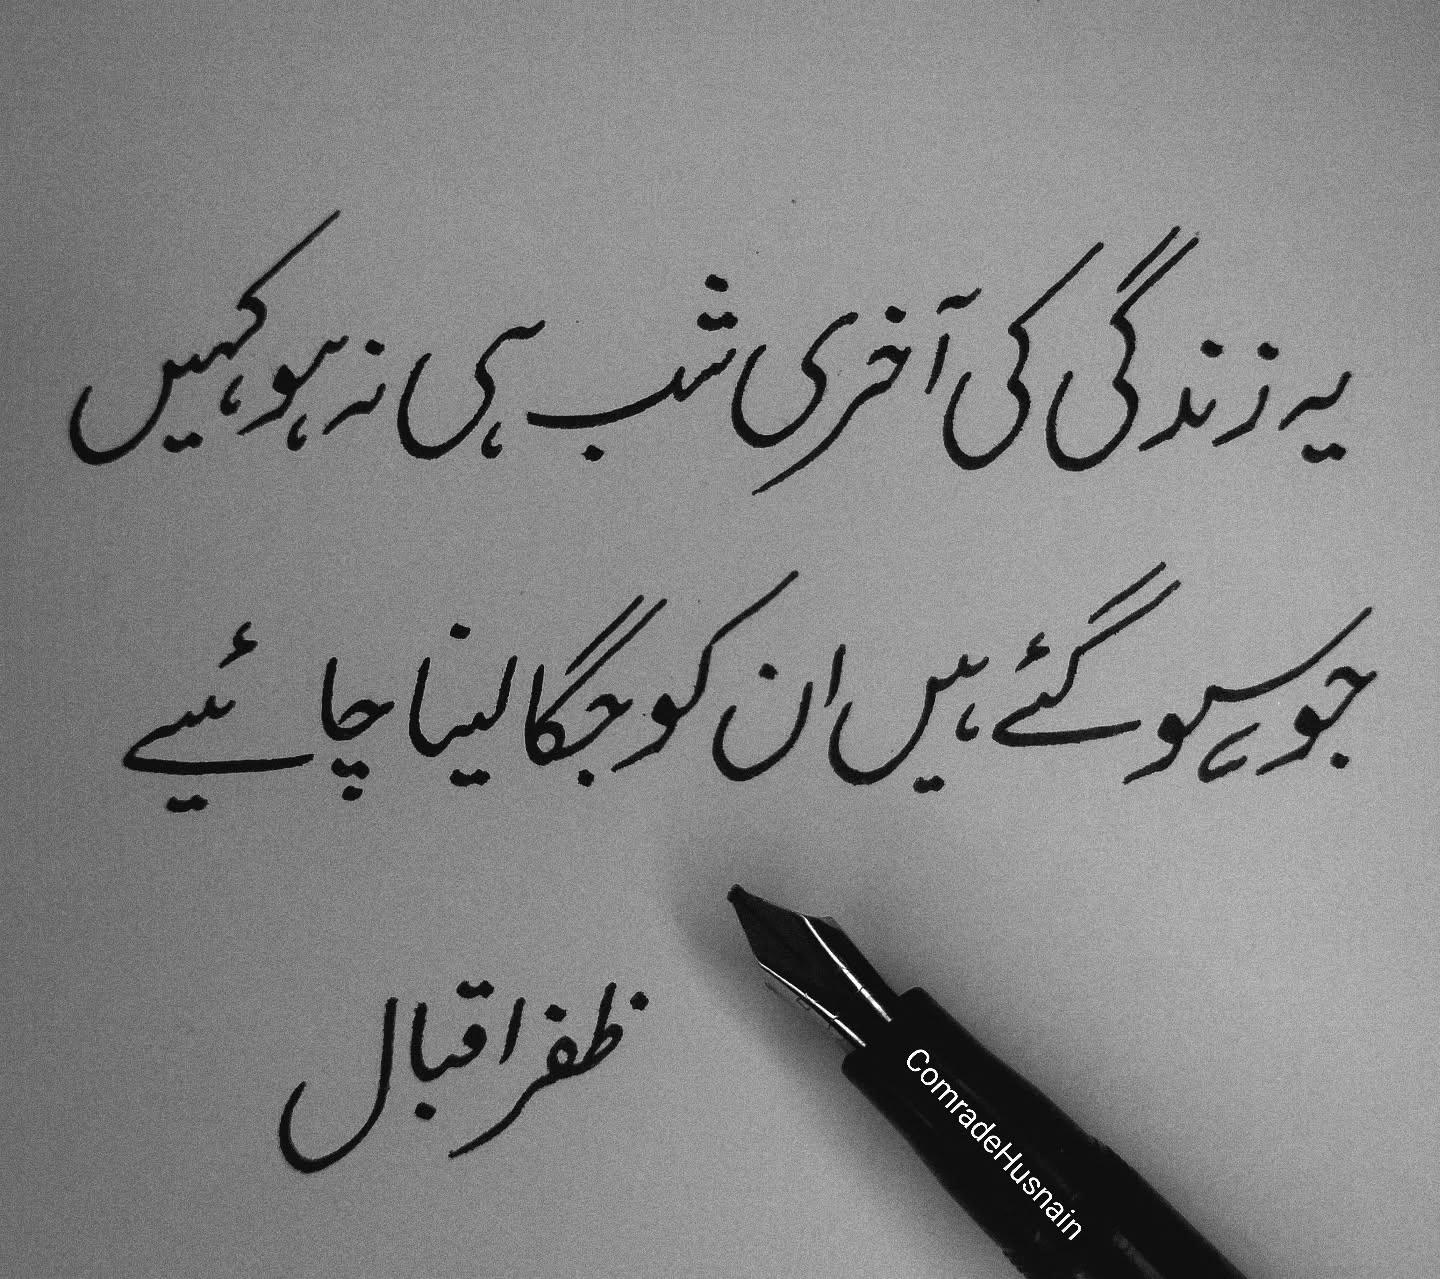 یہ زندگی کی آخری شب ہی نہ ہو کہیں
جو سو گئے ہیں ان کو جگا لینا چائیے
ظفر اقبال
ComradeHusnain